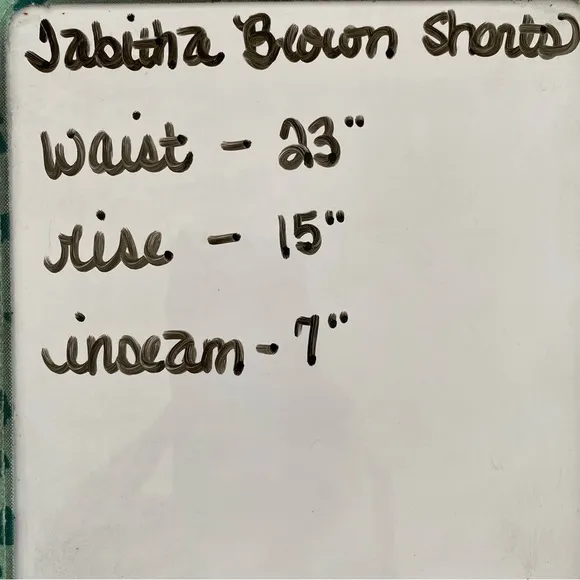 Tabitha Brown Shorts
waist - 23"
rise - 15"
inseam - 7"